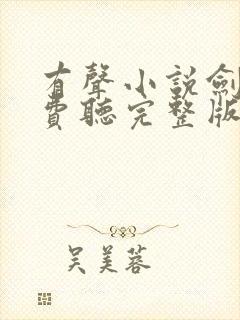 有聲小説劍
費聽完整版
吴美蓉